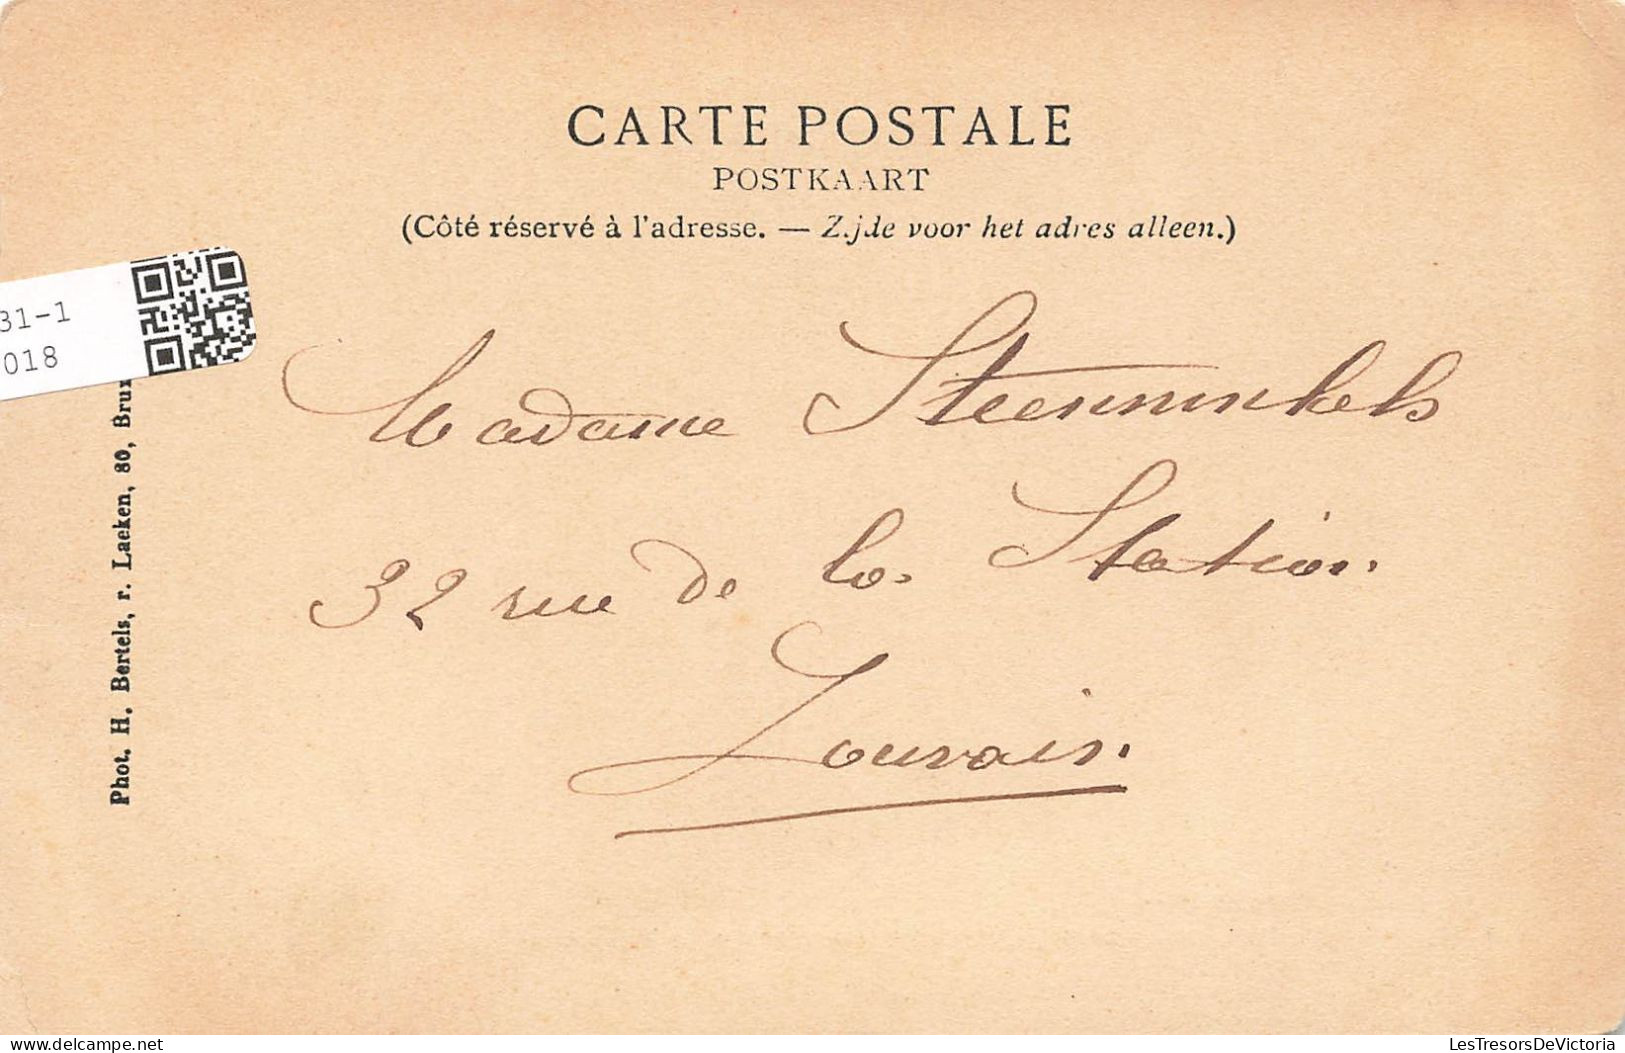 CARTE POSTALE
POSTKAART
(Côté réservé à l'adresse. — Z.jde voor het adres alleen.)
31-1
018
Phot. H. Bertels, r. Laeken, 80, Bru
Madame
32 rue de la Station.
Louvain.
LesTresorsDeVictoria